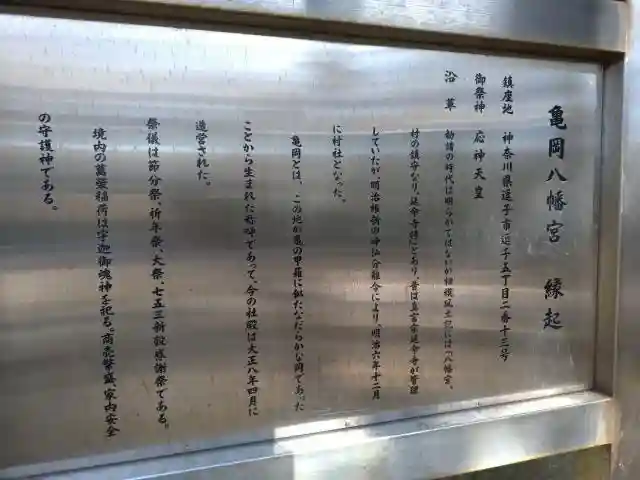 亀岡八幡宮　縁起
鎮座地　神奈川県逗子市逗子五丁目二番十三号
御祭神　応神天皇
沿革　勧請の時代は明らかではないが相模風土記には「八幡宮、
村の鎮守なり、延命寺持」とあり、昔は真言宗延命寺が管理
していたが、明治維新の神仏分離令により、明治六年十二月
に村社となった。
亀岡とは、この地が亀の甲羅に似たなだらかな岡であった
ことから生まれた称呼であって、今の社殿は大正八年四月に
造営された。
祭儀は節分祭、祈年祭、大祭、七五三祈設感謝祭である。
境内の萬栄稲荷は宇迦御魂神を祀る。商売繁盛、家内安全
の守護神である。